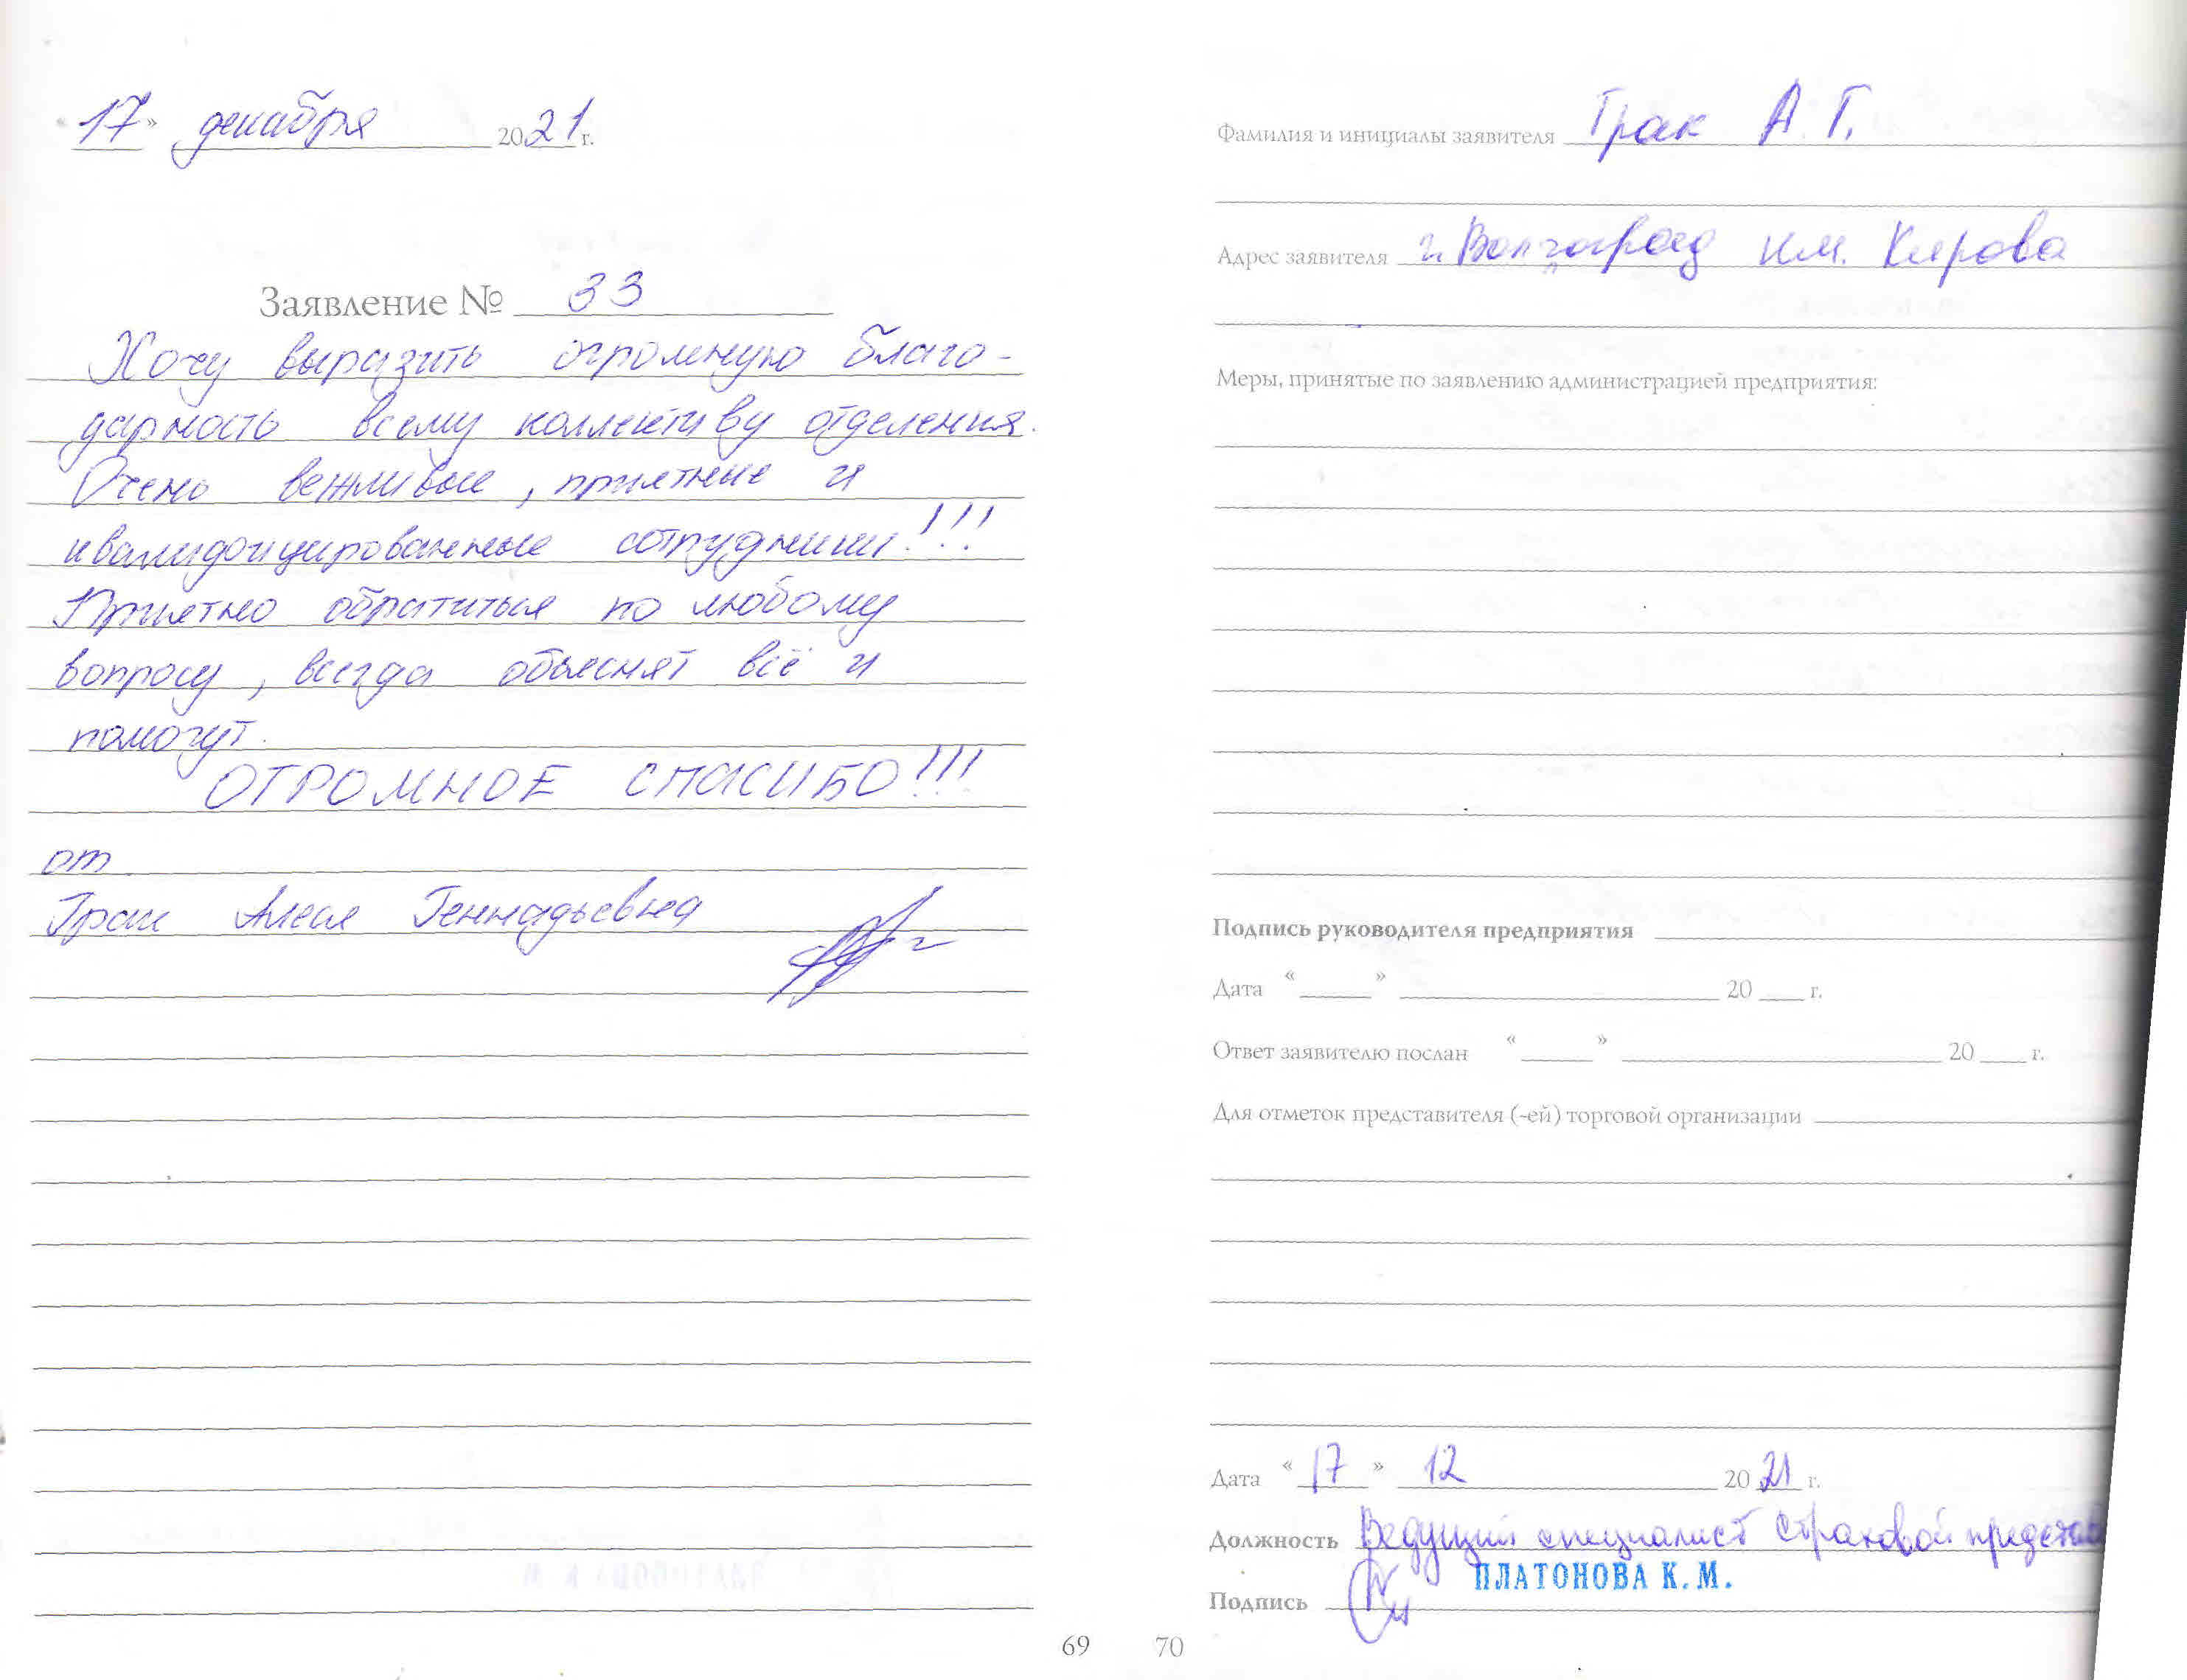 17» декабря 2021 г.
Заявление № 33
Хочу выразить огромную благо-
дарность всему коллективу отделения.
Очень вежливые, приятные и
квалифицированные сотрудники!!!
Приятно обратиться по любому
вопросу, всегда объяснят всё и
помогут.
ОГРОМНОЕ СПАСИБО!!!
от
Грак Алеся Геннадьевна
69
Фамилия и инициалы заявителя Грак А. Г.
Адрес заявителя г. Волгоград им. Кирова
Меры, принятые по заявлению администрацией предприятия:
Подпись руководителя предприятия
Дата « » 20 г.
Ответ заявителю послан « » 20 г.
Для отметок представителя (-ей) торговой организации
Дата « 17 » 12 2021 г.
Должность Ведущий специалист страховой предста
ПЛАТОНОВА К. М.
Подпись
70